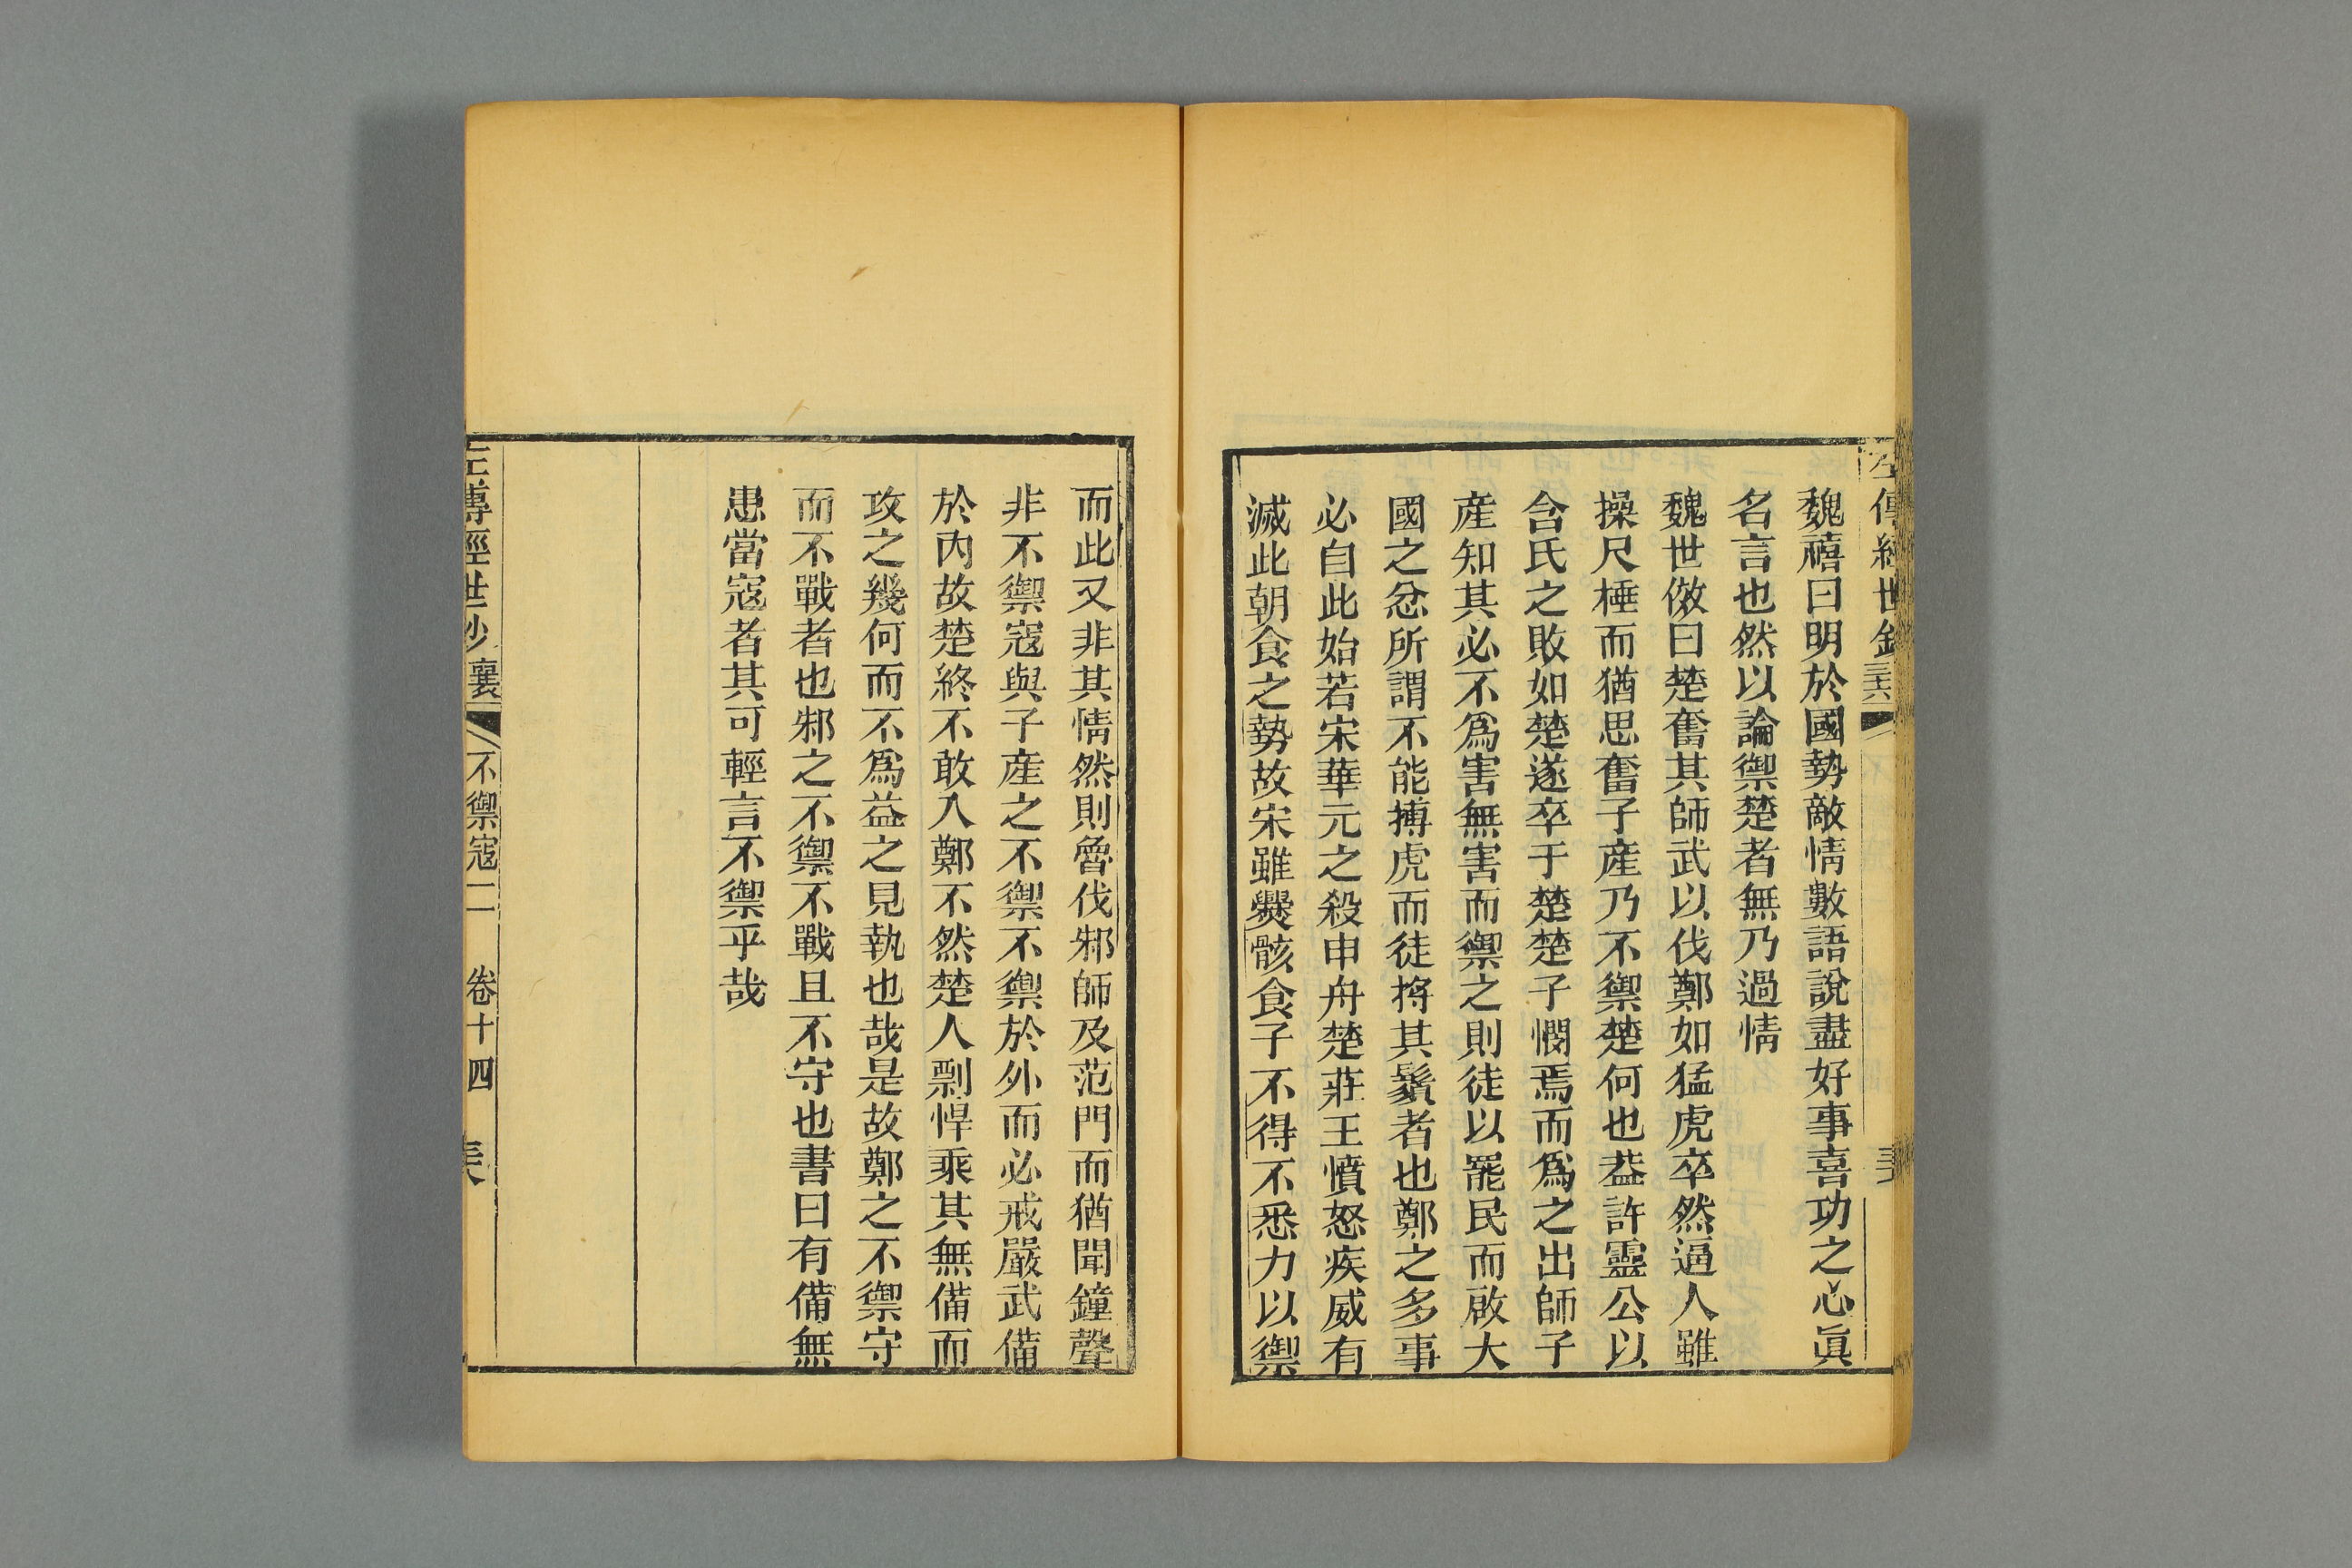 魏禧曰明於國勢敵情數語說盡好事喜功之心眞
名言也然以論禦楚者無乃過情
魏世傚曰楚奮其師武以伐鄭如猛虎卒然逼人雖
操尺棰而猶思奮子産乃不禦楚何也葢許靈公以
含氏之敗如楚遂卒于楚楚子憫焉而爲之出師子
産知其必不爲害無害而禦之則徒以罷民而啟大
國之忿所謂不能搏虎而徒捋其鬚者也鄭之多事
必自此始若宋華元之殺申舟楚莊王憤怒疾威有
滅此朝食之勢故宋雖爨骸食子不得不悉力以禦
而此又非其情然則魯伐邾師及范門而猶聞鐘聲
非不禦寇與子産之不禦不禦於外而必戒嚴武備
於内故楚終不敢入鄭不然楚人剽悍乘其無備而
攻之幾何而不爲益之見執也哉是故鄭之不禦守
而不戰者也邾之不禦不戰且不守也書曰有備無
患當寇者其可輕言不禦乎哉
左傳經世鈔 襄 不禦寇二 卷十四